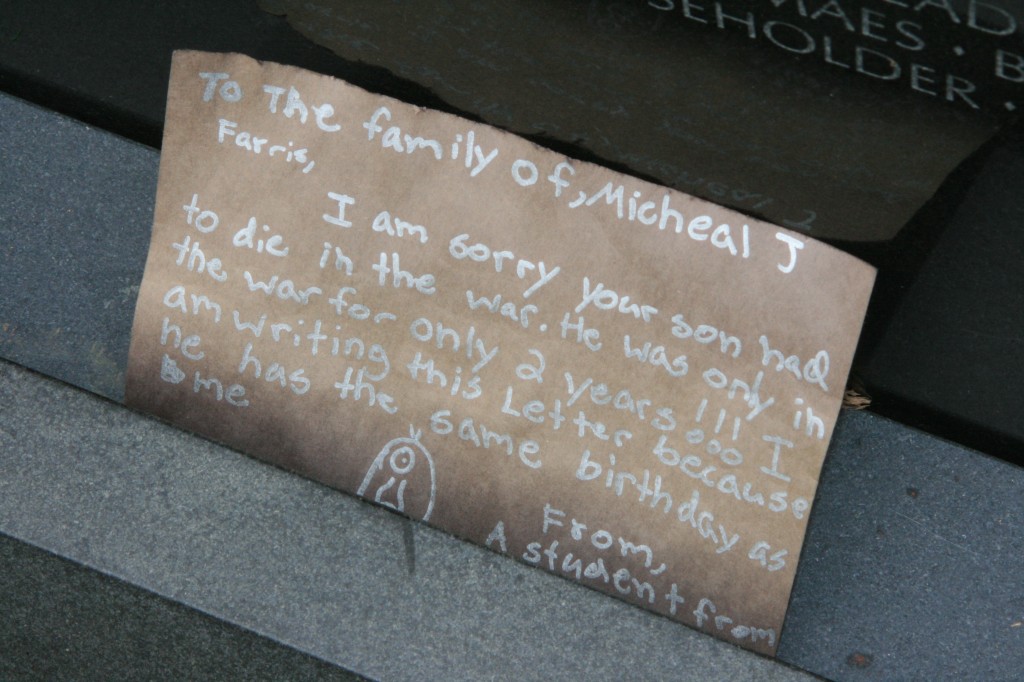 EAD
MAES · B
SEHOLDER ·
To The family of, Micheal J
Farris,
I am sorry your son had
to die in the war. He was only in
the war for only 2 years!!! I
am writing this Letter because
he has the same birthday as
me
From,
A student from